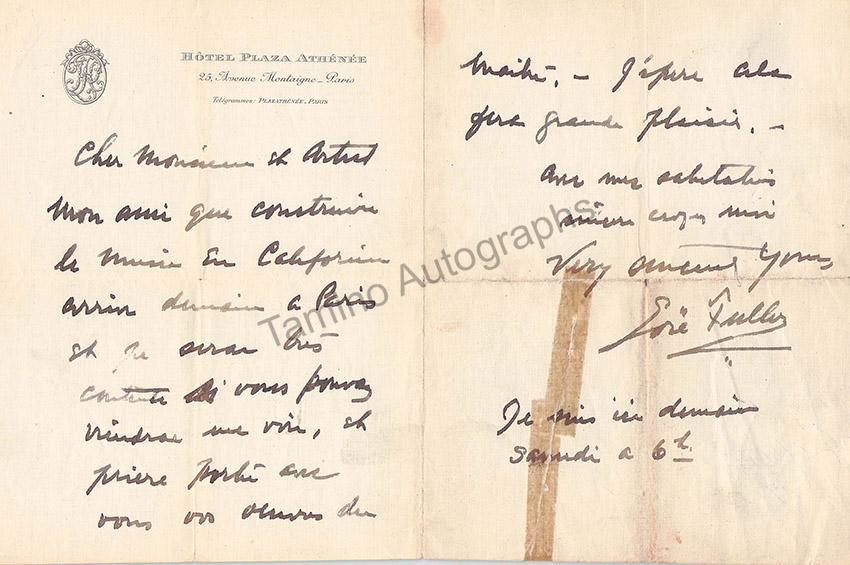 HÔTEL PLAZA ATHÉNÉE
25, Avenue Montaigne - Paris
Télégrammes: PLAZATHÉNÉE, PARIS
Cher Monsieur et Artist
Mon ami que construire
le Musee En California
arrive demain a Paris
et je serai très
contente si vous pouvez
me voir, et
priere porté avec
vous vos du
J'espere cela
fera grande plaisir. -
avec mes salutations
sincere croyez moi
Very sincerely Yours
Loïe Fuller
Je suis ici demain
samedi a 6h
Tamino Autographs